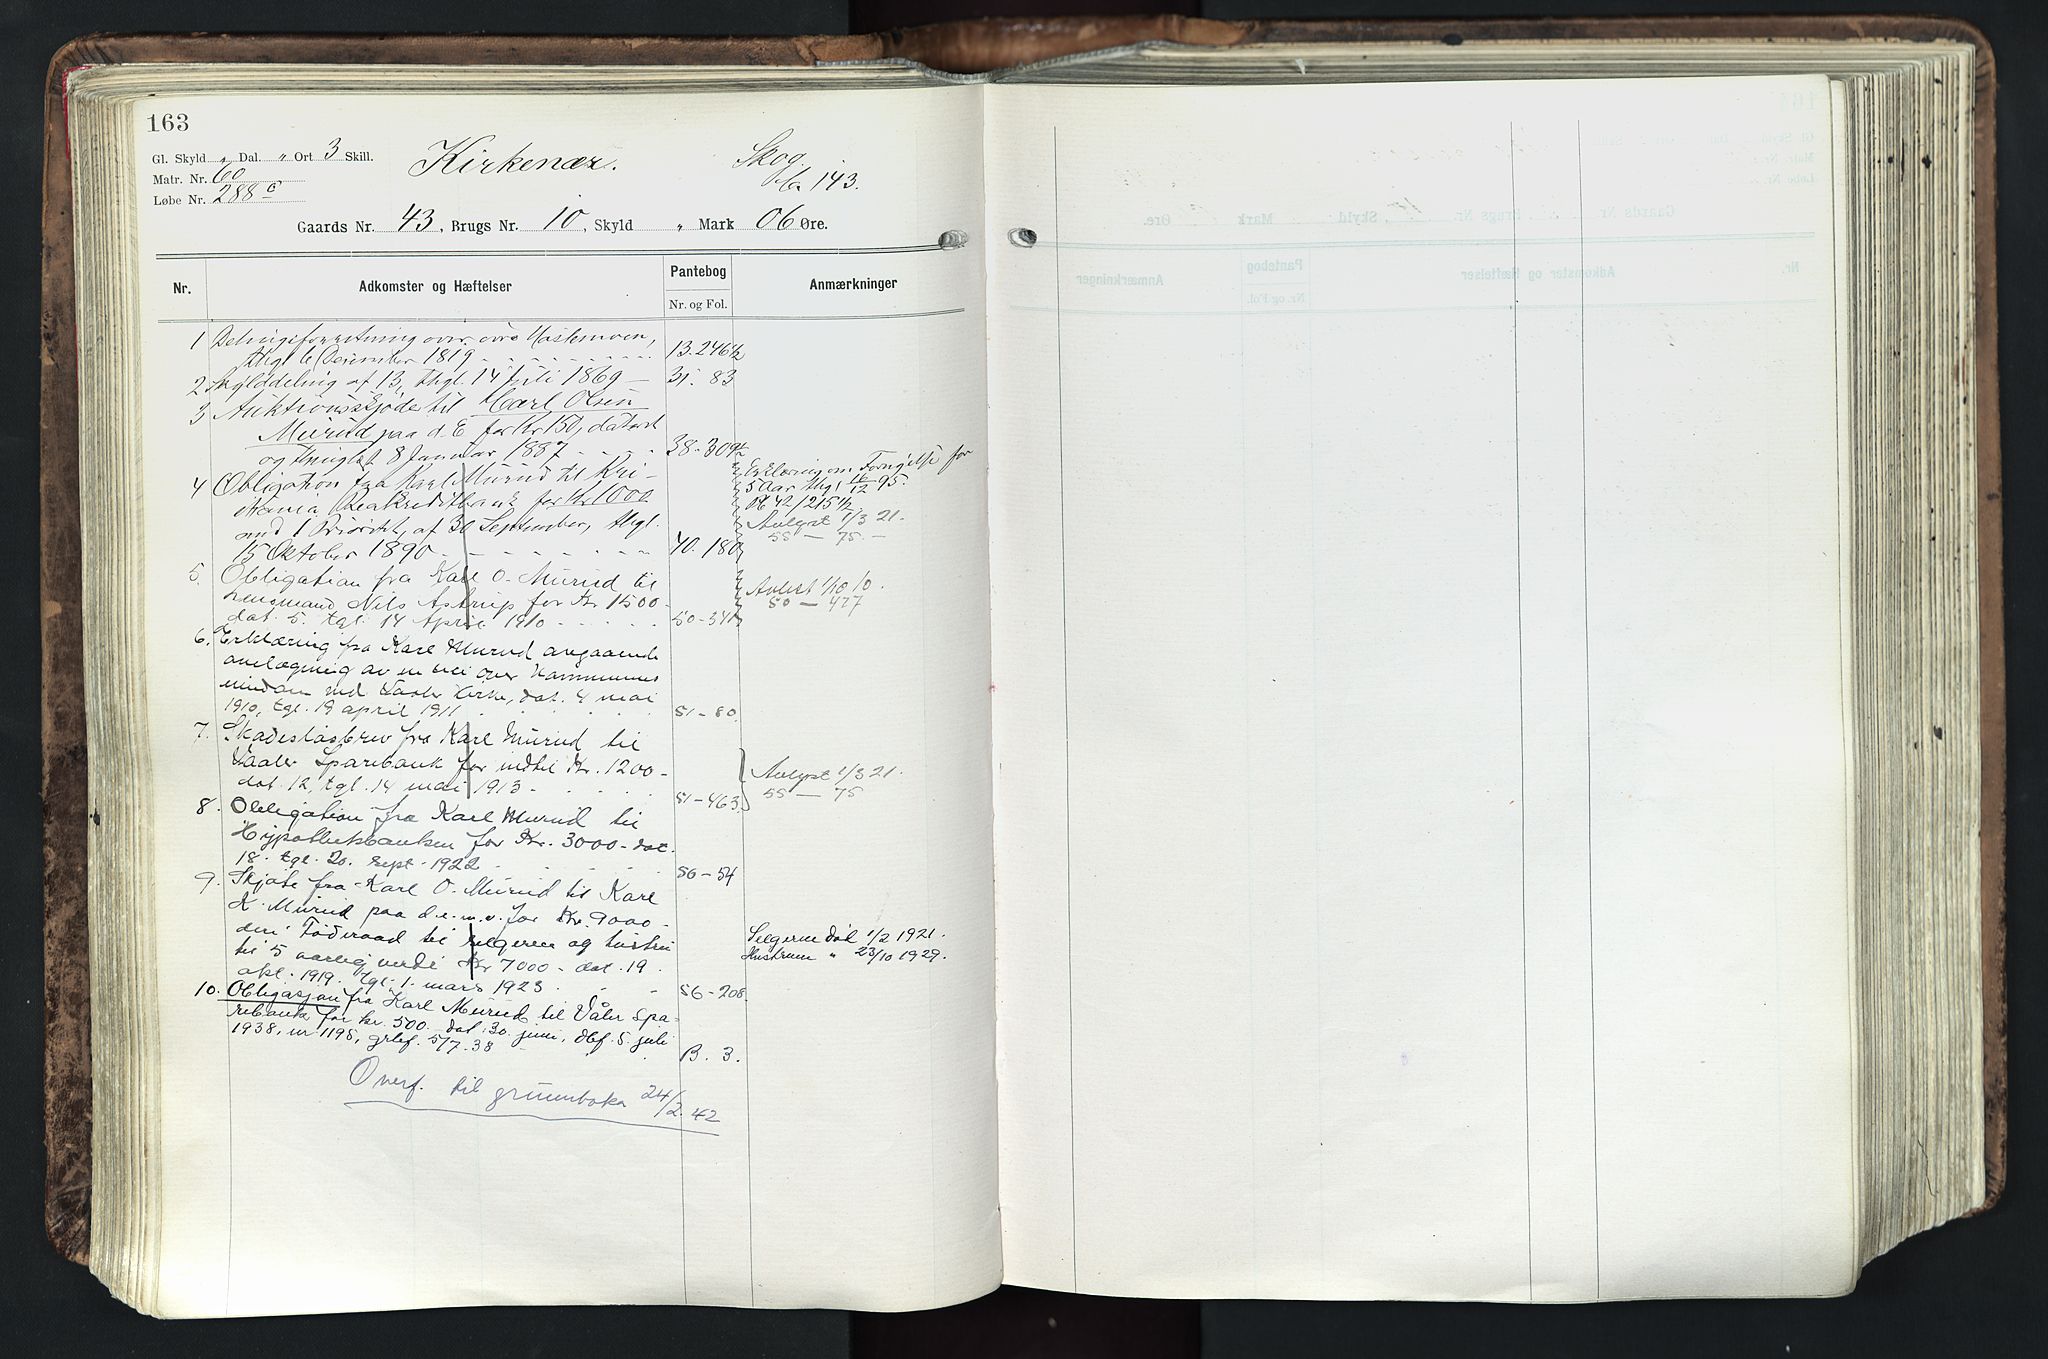 163
Gl. Skyld „ Dal. „ Ort 3 Skill.
Matr. Nr. 60
Løbe Nr. 288 c
Kirkenær.
Skog
143.
Gaards Nr. 43, Brugs Nr. 10, Skyld „ Mark 06 Øre.
Nr.
Adkomster og Hæftelser
Pantebog
Nr. og Fol.
Anmærkninger
1 Delingsforretning over
thgl. 6 December 1819 13. 246½
2 Skylddeling af 13, thgl. 14 Juli 1869 — 31. 83
3 Auktionsskjøde til Carl Olsen
Murud paa d. E for Kr 150, dateret
og thinglæst 8 Januar 1887 38-309½
4 Obligation fra Karl Murud til Kri-
stiania Realkreditbank for Kr 1000
med 1 Prioritet, af 30 September, thgl.
15 Oktober 1890 40. 180
Erklæring om Fornyelse for
5 Aar thgl 16/12 95.
Pb 42/215½
Avlyst 1/3 21.
55 — 75 —
5. Obligation fra Karl O. Murud til
Lensmand Nils Astrup for Kr 1500-
dat. 5. tgl. 14 April 1910 50-341
Avlest 1/10 10.
50 — 477
6. Erklæring fra Karl Murud angaaende
anlægning av en vei over Kommunens
eiendom ved Vaaler Kirke, dat. 4 mai
1910, tgl. 19 april 1911 51-80
7. Skadesløsbrev fra Karl Murud til
Vaaler Sparebank for indtil Kr. 1200-
dat. 12, tgl. 14 mai 1913 51-463
Avlyst 1/3 21.
55 — 75
8. Obligation fra Karl Murud til
Hypothekbanken for Kr. 3000- dat.
18. tgl. 20. sept. 1922 56-54
9. Skjøte fra Karl O. Murud til Karl
K. Murud paa d.e.m.v. for Kr. 9000-
deri Føderaad til selgeren og hustru
til 5 aarlig verdi Kr 7000- dat. 19
okt. 1919. tgl. 1. mars 1923 56-208
Selgeren død 1/2 1921.
Hustruen „ 23/10 1929.
10. Obligasjon fra Karl Murud til Våler Spa-
rebank for kr. 500.- dat. 30 juni, dbf. 5. juli
1938, nr 1195, grlef. 5/7.38 B. 3.
Overf. til grunnboka 24/2.42
Gl. Skyld
Dal.
Skill.
Matr. Nr.
Løbe Nr.
Gaards Nr.
Brugs Nr.
Skyld
Mark
Øre.
Nr.
Adkomster og Hæftelser
Pantebog
Nr. og Fol.
Anmærkninger